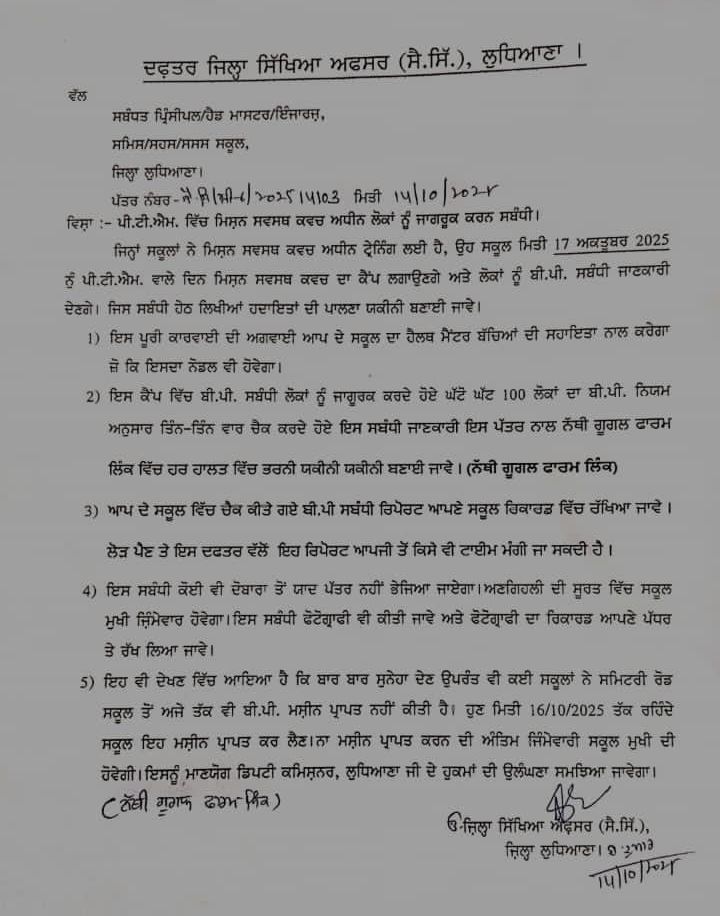 ਦਫ਼ਤਰ ਜਿਲ੍ਹਾ ਸਿੱਖਿਆ ਅਫਸਰ (ਸੈ.ਸਿੱ.), ਲੁਧਿਆਣਾ ।
ਵੱਲ
ਸਬੰਧਤ ਪ੍ਰਿੰਸੀਪਲ/ਹੈਡ ਮਾਸਟਰ/ਇੰਜਾਰਜ਼,
ਸਮਿਸ/ਸਹਸ/ਸਸਸ ਸਕੂਲ,
ਜਿਲ੍ਹਾ ਲੁਧਿਆਣਾ।
ਪੱਤਰ ਨੰਬਰ- ਮਿਤੀ 14/10/2025
ਵਿਸ਼ਾ :- ਪੀ.ਟੀ.ਐਮ. ਵਿੱਚ ਮਿਸ਼ਨ ਸਵਸਥ ਕਵਚ ਅਧੀਨ ਲੋਕਾਂ ਨੂੰ ਜਾਗਰੂਕ ਕਰਨ ਸਬੰਧੀ।
ਜਿਨ੍ਹਾਂ ਸਕੂਲਾਂ ਨੇ ਮਿਸ਼ਨ ਸਵਸਥ ਕਵਚ ਅਧੀਨ ਟ੍ਰੇਨਿੰਗ ਲਈ ਹੈ, ਉਹ ਸਕੂਲ ਮਿਤੀ 17 ਅਕਤੂਬਰ 2025
ਨੂੰ ਪੀ.ਟੀ.ਐਮ. ਵਾਲੇ ਦਿਨ ਮਿਸ਼ਨ ਸਵਸਥ ਕਵਚ ਦਾ ਕੈਂਪ ਲਗਾਉਣਗੇ ਅਤੇ ਲੋਕਾਂ ਨੂੰ ਬੀ.ਪੀ. ਸਬੰਧੀ ਜਾਣਕਾਰੀ
ਦੇਣਗੇ। ਜਿਸ ਸਬੰਧੀ ਹੇਠ ਲਿਖੀਆਂ ਹਦਾਇਤਾਂ ਦੀ ਪਾਲਣਾ ਯਕੀਨੀ ਬਣਾਈ ਜਾਵੇ।
1) ਇਸ ਪੂਰੀ ਕਾਰਵਾਈ ਦੀ ਅਗਵਾਈ ਆਪ ਦੇ ਸਕੂਲ ਦਾ ਹੈਲਥ ਮੈਂਟਰ ਬੱਚਿਆਂ ਦੀ ਸਹਾਇਤਾ ਨਾਲ ਕਰੇਗਾ
ਜ਼ੋ ਕਿ ਇਸਦਾ ਨੋਡਲ ਵੀ ਹੋਵੇਗਾ।
2) ਇਸ ਕੈਂਪ ਵਿੱਚ ਬੀ.ਪੀ. ਸਬੰਧੀ ਲੋਕਾਂ ਨੂੰ ਜਾਗੂਰਕ ਕਰਦੇ ਹੋਏ ਘੱਟੋ ਘੱਟ 100 ਲੋਕਾਂ ਦਾ ਬੀ.ਪੀ. ਨਿਯਮ
ਅਨੁਸਾਰ ਤਿੰਨ-ਤਿੰਨ ਵਾਰ ਚੈਕ ਕਰਦੇ ਹੋਏ ਇਸ ਸਬੰਧੀ ਜਾਣਕਾਰੀ ਇਸ ਪੱਤਰ ਨਾਲ ਨੱਥੀ ਗੂਗਲ ਫਾਰਮ
ਲਿੰਕ ਵਿੱਚ ਹਰ ਹਾਲਤ ਵਿੱਚ ਭਰਨੀ ਯਕੀਨੀ ਯਕੀਨੀ ਬਣਾਈ ਜਾਵੇ। (ਨੱਥੀ ਗੂਗਲ ਫਾਰਮ ਲਿੰਕ)
3) ਆਪ ਦੇ ਸਕੂਲ ਵਿੱਚ ਚੈਕ ਕੀਤੇ ਗਏ ਬੀ.ਪੀ ਸਬੰਧੀ ਰਿਪੋਰਟ ਆਪਣੇ ਸਕੂਲ ਰਿਕਾਰਡ ਵਿੱਚ ਰੱਖਿਆ ਜਾਵੇ ।
ਲੋੜ ਪੈਣ ਤੇ ਇਸ ਦਫਤਰ ਵੱਲੋਂ ਇਹ ਰਿਪੋਰਟ ਆਪਜੀ ਤੋਂ ਕਿਸੇ ਵੀ ਟਾਈਮ ਮੰਗੀ ਜਾ ਸਕਦੀ ਹੈ ।
4) ਇਸ ਸਬੰਧੀ ਕੋਈ ਵੀ ਦੋਬਾਰਾ ਤੋਂ ਯਾਦ ਪੱਤਰ ਨਹੀਂ ਭੇਜਿਆ ਜਾਏਗਾ।ਅਣਗਿਹਲੀ ਦੀ ਸੂਰਤ ਵਿੱਚ ਸਕੂਲ
ਮੁਖੀ ਜ਼ਿੰਮੇਵਾਰ ਹੋਵੇਗਾ।ਇਸ ਸਬੰਧੀ ਫੋਟੋਗ੍ਰਾਫੀ ਵੀ ਕੀਤੀ ਜਾਵੇ ਅਤੇ ਫੋਟੋਗ੍ਰਾਫੀ ਦਾ ਰਿਕਾਰਡ ਆਪਣੇ ਪੱਧਰ
ਤੇ ਰੱਖ ਲਿਆ ਜਾਵੇ।
5) ਇਹ ਵੀ ਦੇਖਣ ਵਿੱਚ ਆਇਆ ਹੈ ਕਿ ਬਾਰ ਬਾਰ ਸੁਨੇਹਾ ਦੇਣ ਉਪਰੰਤ ਵੀ ਕਈ ਸਕੂਲਾਂ ਨੇ ਸਮਿਟਰੀ ਰੋਡ
ਸਕੂਲ ਤੋਂ ਅਜੇ ਤੱਕ ਵੀ ਬੀ.ਪੀ. ਮਸ਼ੀਨ ਪ੍ਰਾਪਤ ਨਹੀਂ ਕੀਤੀ ਹੈ। ਹੁਣ ਮਿਤੀ 16/10/2025 ਤੱਕ ਰਹਿੰਦੇ
ਸਕੂਲ ਇਹ ਮਸ਼ੀਨ ਪ੍ਰਾਪਤ ਕਰ ਲੈਣ।ਨਾ ਮਸ਼ੀਨ ਪ੍ਰਾਪਤ ਕਰਨ ਦੀ ਅੰਤਿਮ ਜਿੰਮੇਵਾਰੀ ਸਕੂਲ ਮੁਖੀ ਦੀ
ਹੋਵੇਗੀ।ਇਸਨੂੰ ਮਾਣਯੋਗ ਡਿਪਟੀ ਕਮਿਸ਼ਨਰ, ਲੁਧਿਆਣਾ ਜੀ ਦੇ ਹੁਕਮਾਂ ਦੀ ਉਲੰਘਣਾ ਸਮਝਿਆ ਜਾਵੇਗਾ।
(ਨੱਥੀ ਗੂਗਲ ਫਾਰਮ ਲਿੰਕ)
ਜ਼ਿਲ੍ਹਾ ਸਿੱਖਿਆ ਅਫਸਰ (ਸੈ.ਸਿੱ.),
ਜ਼ਿਲ੍ਹਾ ਲੁਧਿਆਣਾ।
14/10/2025